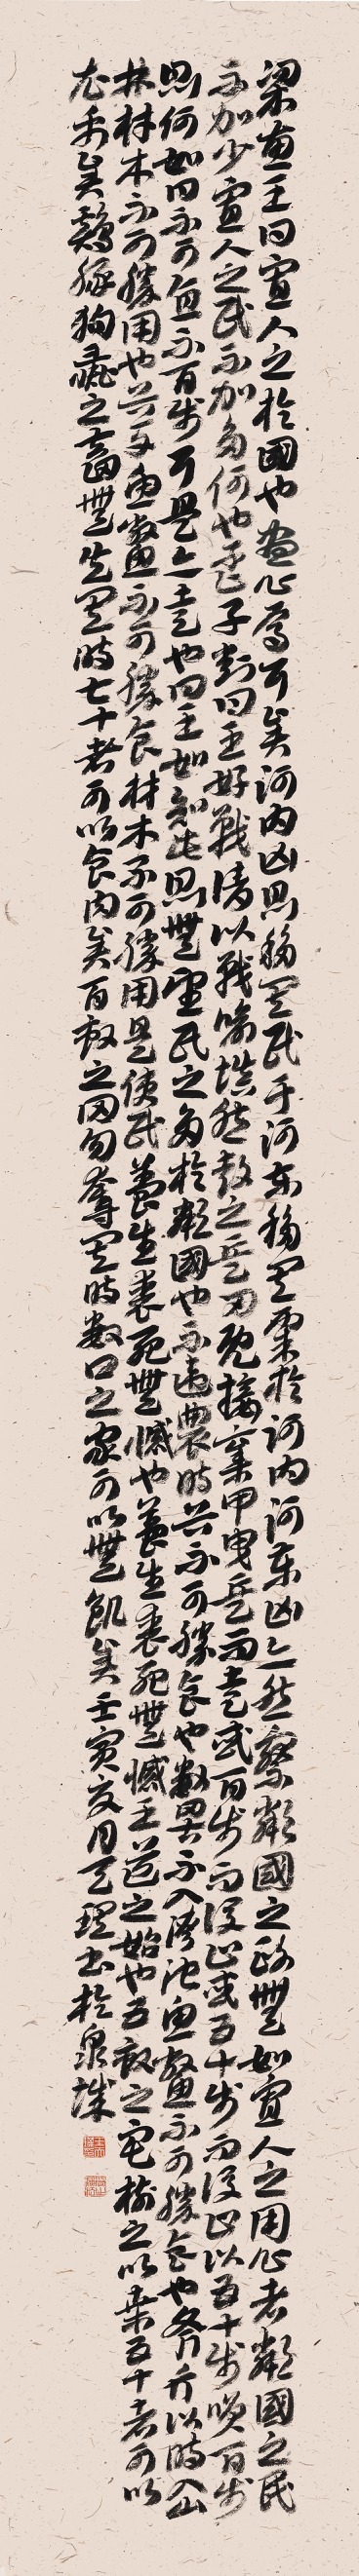 梁惠王曰寡人之於國也盡心焉耳矣河內凶則移其民于河東移其粟於河內河東凶亦然察鄰國之政無如寡人之用心者鄰國之民
不加少寡人之民不加多何也孟子對曰王好戰請以戰喻填然鼓之兵刃既接棄甲曳兵而走或百步而後止或五十步而後止以五十步笑百步
則何如曰不可直不百步耳是亦走也曰王如知此則無望民之多於鄰國也不違農時谷不可勝食也數罟不入洿池魚鱉不可勝食也斧斤以時入山
林林木不可勝用也谷與魚鱉不可勝食材木不可勝用是使民養生喪死無憾也養生喪死無憾王道之始也五畝之宅樹之以桑五十者可以
衣帛矣雞豚狗彘之畜無失其時七十者可以食肉矣百畝之田勿奪其時數口之家可以無飢矣壬寅夏月天理書於泉城